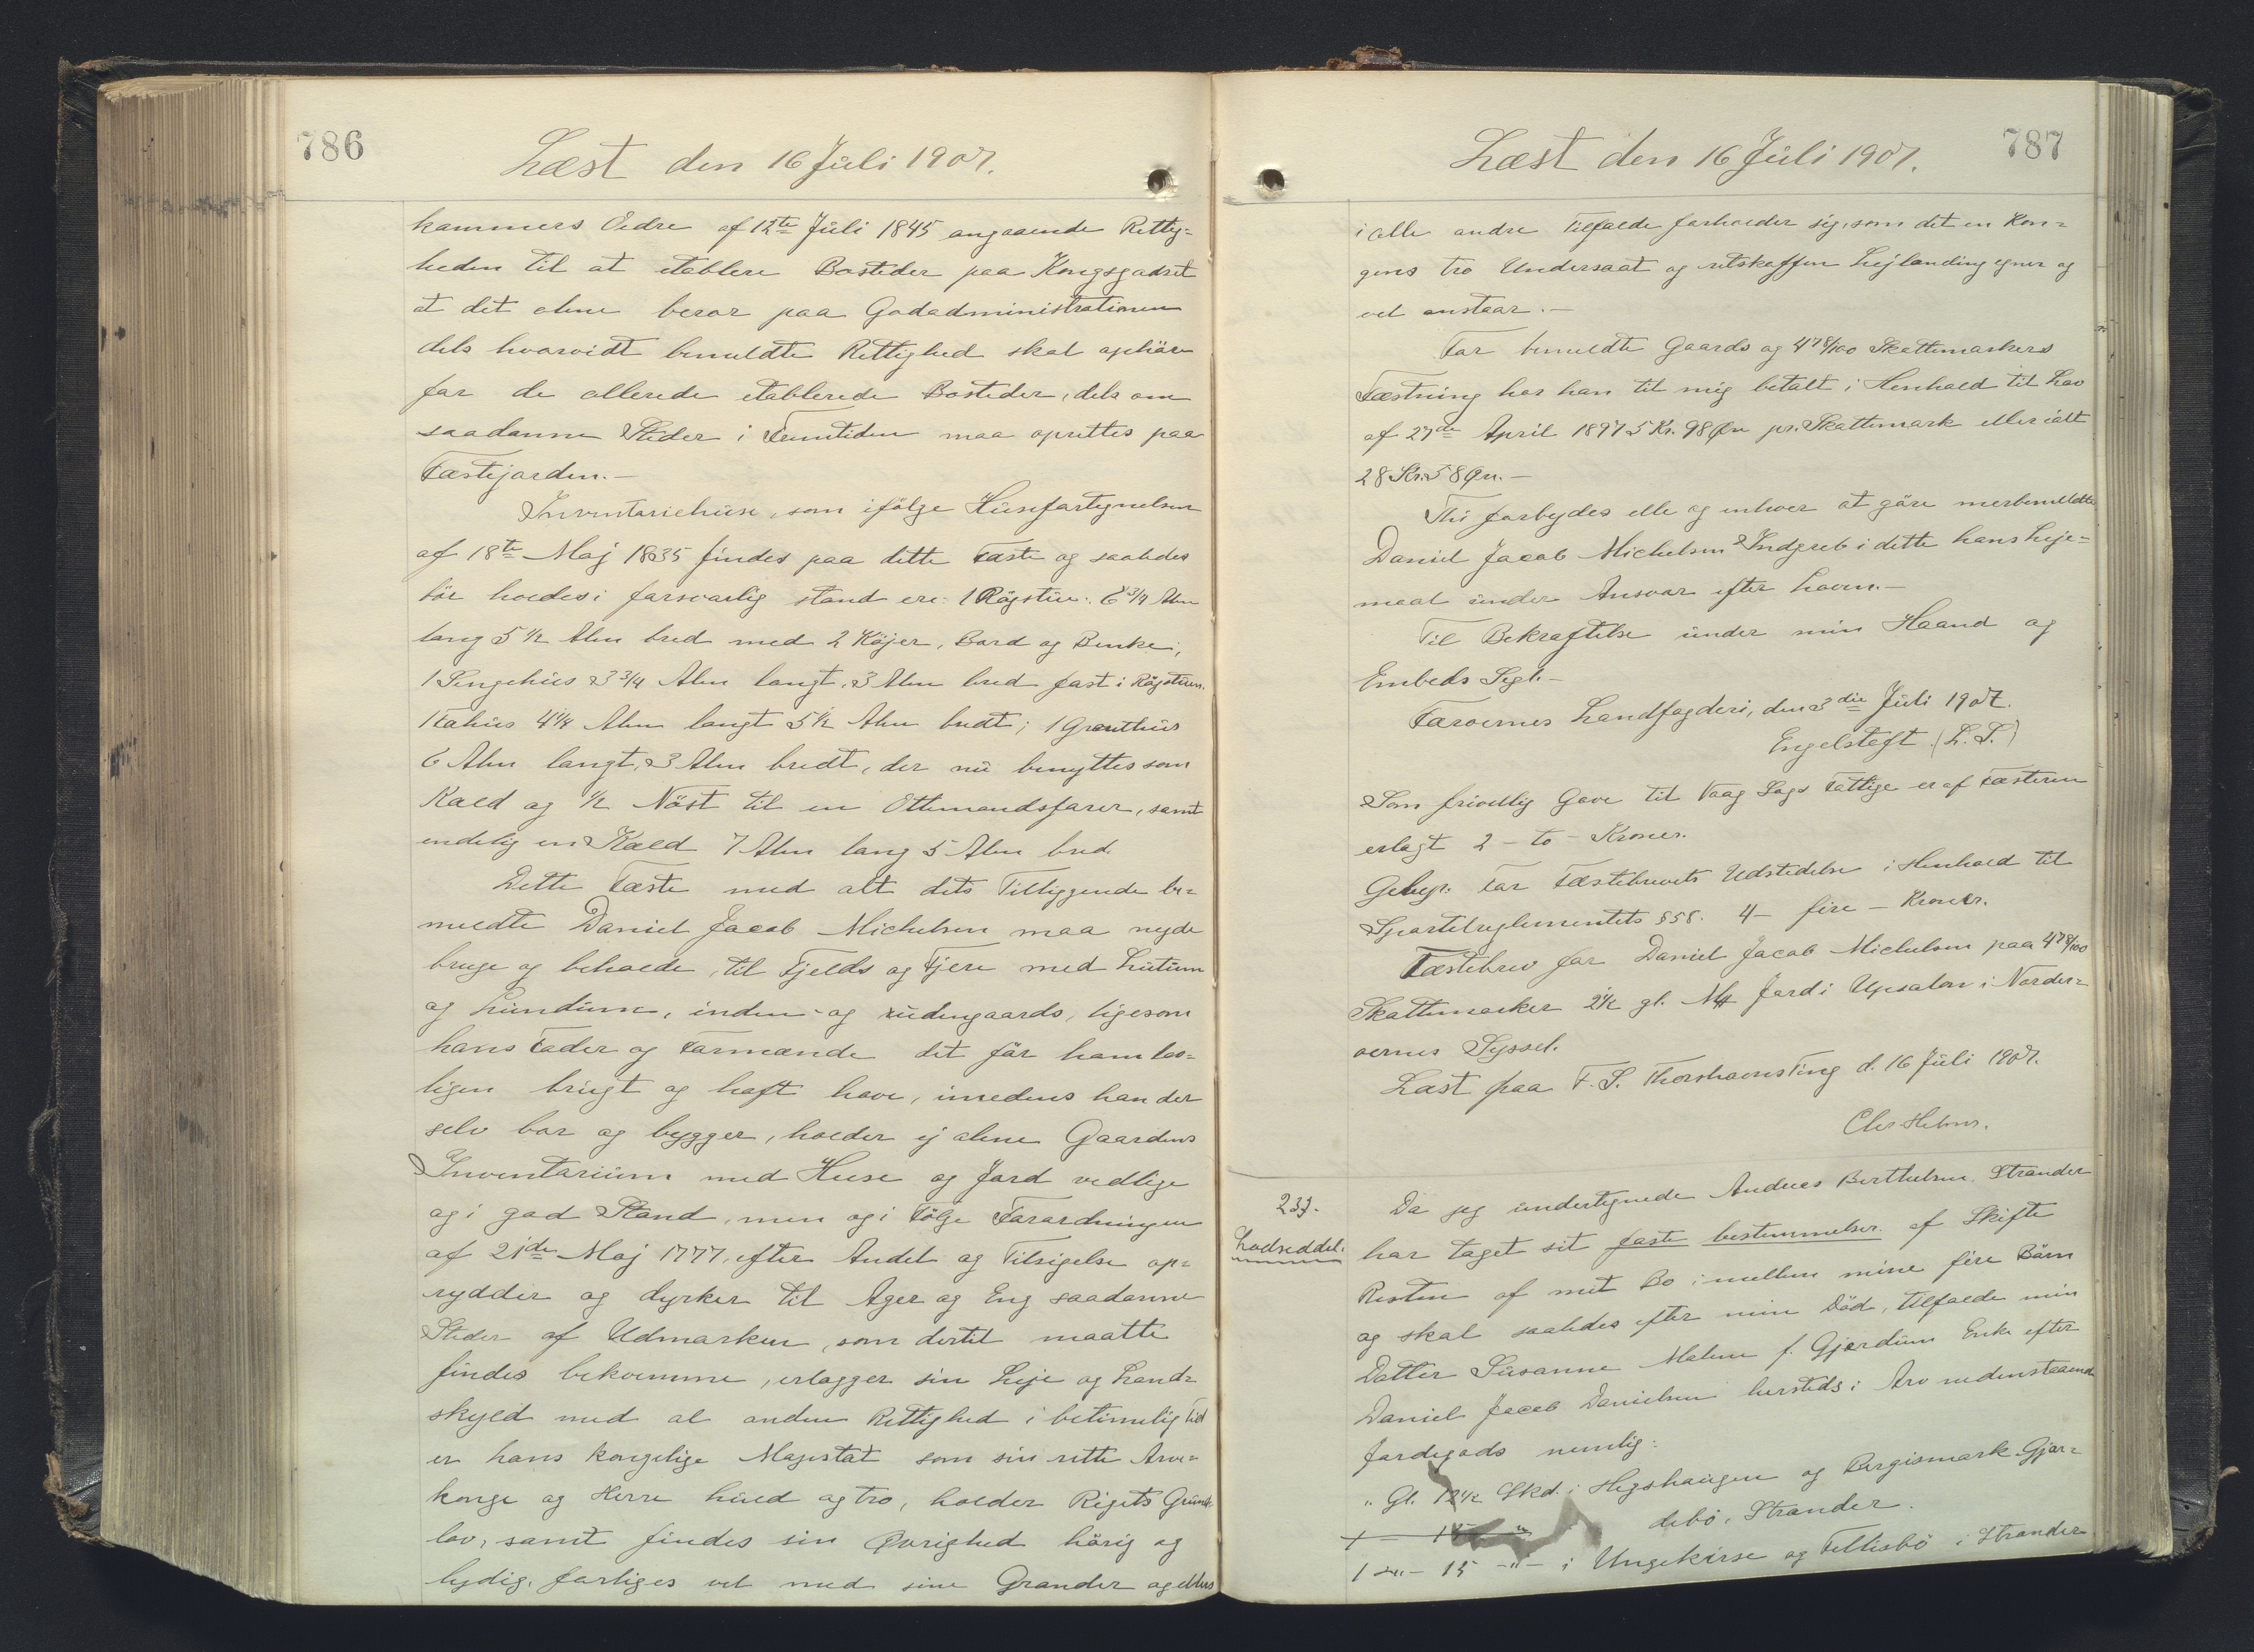 786
Læst den 16 Juli 1907.
kammers Ordre af 12te Juli 1845 angaaende Rettig=
heden til at etablere Bosteder paa Kongsgodset
at det alene beror paa Godsadministrationen
dels hvorvidt bemeldte Rettighed skal ophöre
for de allerede etablerede Bosteder, dels om
saadanne Steder i Fremtiden maa oprettes paa
Fæstejorden.-
Inventariehuse, som ifölge Husefortegnelsen
af 18te Maj 1835 findes paa dette Fæste og saaledes
bör holdes i forsvarlig stand ere: 1 Rögstue: 6 3/4 Alen
lang 5 1/2 Alen bred med 2 Köjer, Bord og Benke;
1 Sengehus 3 3/4 Alen langt, 3 Alen bred fast i Rögstuen.
1 Fahus 4 1/4 Alen langt 5 1/2 Alen bredt; 1 Grønthus
6 Alen langt, 3 Alen bredt, der nu benyttes som
Kald og 1/2 Nöst til en Ottemandsfarer, samt
endelig en Kæld 7 Alen lang 5 Alen bred.
Dette Fæste med alt dets Tilliggende be=
meldte Daniel Jacob Michelsen maa nyde
bruge og beholde, til Fjelds og Fjere med Lutum
og Lundum, inden- og udengaards, ligesom
hans Fader og Formænde det för ham lov=
ligen brugt og haft have, imedens han der
selv bor og bygger, holder ej alene Gaardens
Inventarium med Huse og Jord vedlige
og i god Stand, men og i Fölge Forordningen
af 21de Maj 1777, efter Andel og Tilsigelse op=
rydder og dyrker til Ager og Eng saadanne
Steder af Udmarken, som dertil maatte
findes bekvemme, erlægger sin Leje og Land=
skyld med al anden Rettighed i betimelig Tid
er hans kongelige Majestæt som sin rette Arve=
konge og Herre huld og tro, holder Rigets Grund=
lov, samt findes sin Øvrighed hörig og
lydig, forliges vel med sine Grander og ellers
787
Læst den 16 Juli 1907.
i alle andre Tilfælde forholder sig, som det en Kon=
gens tro Undersaat og retskaffen Lejlænding egner og
vel anstaar.-
For bemeldte Gaards og 4 78/100 Skattemarkers
Fæstning har han til mig betalt i Henhold til Lov
af 27de April 1897 5 Kr. 98 Øre pr. Skattemark eller ialt
28 Kr. 58 Øre.-
Thi forbydes alle og enhver at göre merbemeldte
Daniel Jacob Michelsen Indgreb i dette hans Leje=
maal under Ansvar efter Loven.-
Til Bekræftelse under min Haand og
Embeds Segl.-
Færøernes Landfogderi, den 3die Juli 1907.
Engelstoft (L.S.)
Som frivillig Gave til Vaag Sogs Fattige er af Fæsteren
erlagt 2 - to - Kroner.
Gebyr for Fæstebrevets Udstedelse i Henhold til
Sportelreglementets §58. 4 - fire - Kroner.
Fæstebrev for Daniel Jacob Michelsen paa 4 78/100
Skattemarker 2 1/2 gl. Mk Jord i Upsalom i Norder=
oernes Syssel.
Læst paa F. S. Thorshavns Ting d. 16 Juli 1907.
237.
Lodseddel.
Da jeg undertegnede Andreas Berthelsen, Strander
har taget sit faste bestemmelser af Skifte
Resten af mit Bo imellem mine fire Börn
og skal saaledes efter min Död, tilfalde min
Datter Susanne Malene f. Gjerdum Enke efter
Daniel Jacob Danielsen hersteds i Arv nedenstaaende
Jordegods nemlig:
" Gl. 12 1/2 Skd. i Hegshaugen og Bergismark-Gjör=
debö, Strander.
1 -"- 15 -"- i Ungekirse og Fellisbö i Strander